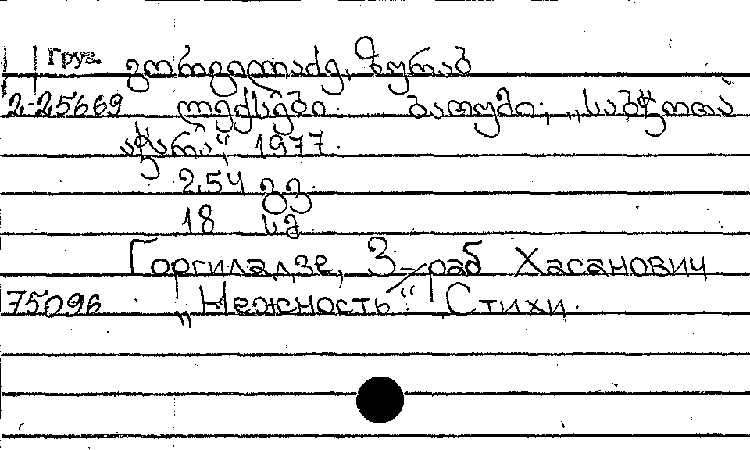 Груз. გორგილაძე, ზურაბ
2-25669 ლექსები. ბათუმი, „საბჭოთა
აჭარა“, 1977.
254 გვ.
18 სმ
Горгиладзе, З-раб Хасанович
75096 „Нежность“ Стихи.